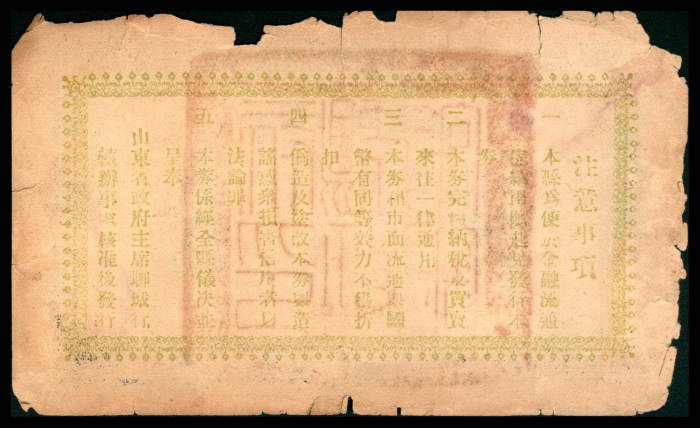 注意事項
一 本縣爲便於金融流通
發行本
券
二 本券完糧納稅及買賣
來往一律通用
三 本券在市面流通與國
幣有同等效力不得折
扣
四 僞造及塗改本券與造
謠惑衆損害信用者以
法論罪
五 本券係經全縣議決並
呈奉
山東省政府主席聊城行
辦事處核准後發行